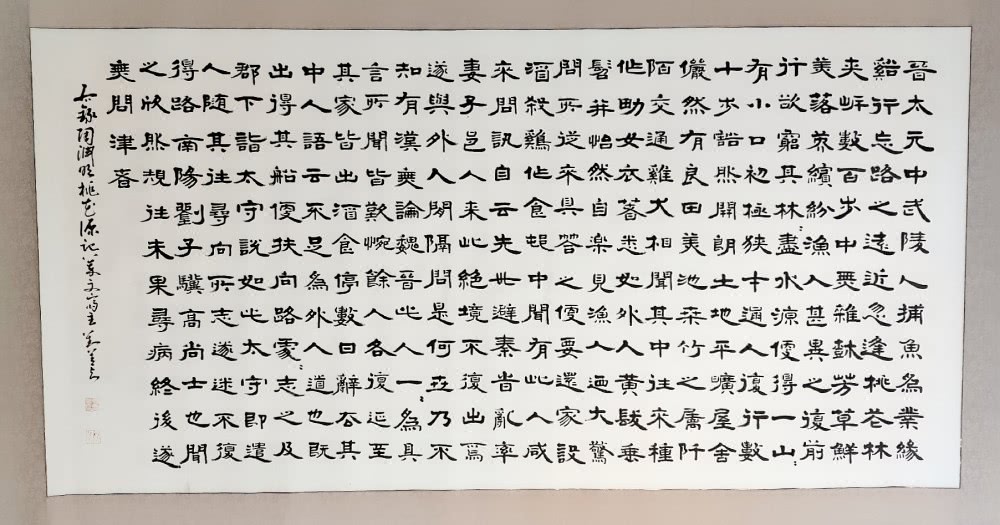 晉太元中武陵人捕魚為業緣
谿行忘路之遠近忽逢桃花林
夾岸數百步中無雜樹芳草鮮
美落英繽紛漁人甚異之復前
行欲窮其林〻盡水源便得一山〻
有小口初極狹才通人復行數
十步豁然開朗土地平曠屋舍
儼然有良田美池桑竹之屬阡
陌交通雞犬相聞其中往來種
作男女衣著悉如外人黃髮垂
髫并怡然自樂見漁人迺大驚
問所從來具答之便要還家設
酒殺雞作食村中聞有此人咸
來問訊自云先世避秦時亂率
妻子邑人來此絕境不復出焉
遂與外人間隔問是何世乃不
知有漢無論魏晉此人一〻為具
言所聞皆歎惋餘人各復延至
其家皆出酒食停數日辭去其
中人語云不足為外人道也既
出得其船便扶向路處〻志之及
郡下詣太守說如此太守即遣
人隨其往尋向所志遂迷不復
得路南陽劉子驥高尚士也聞
之欣然規往未果尋病終後遂
無問津者
錄陶淵明桃花源記